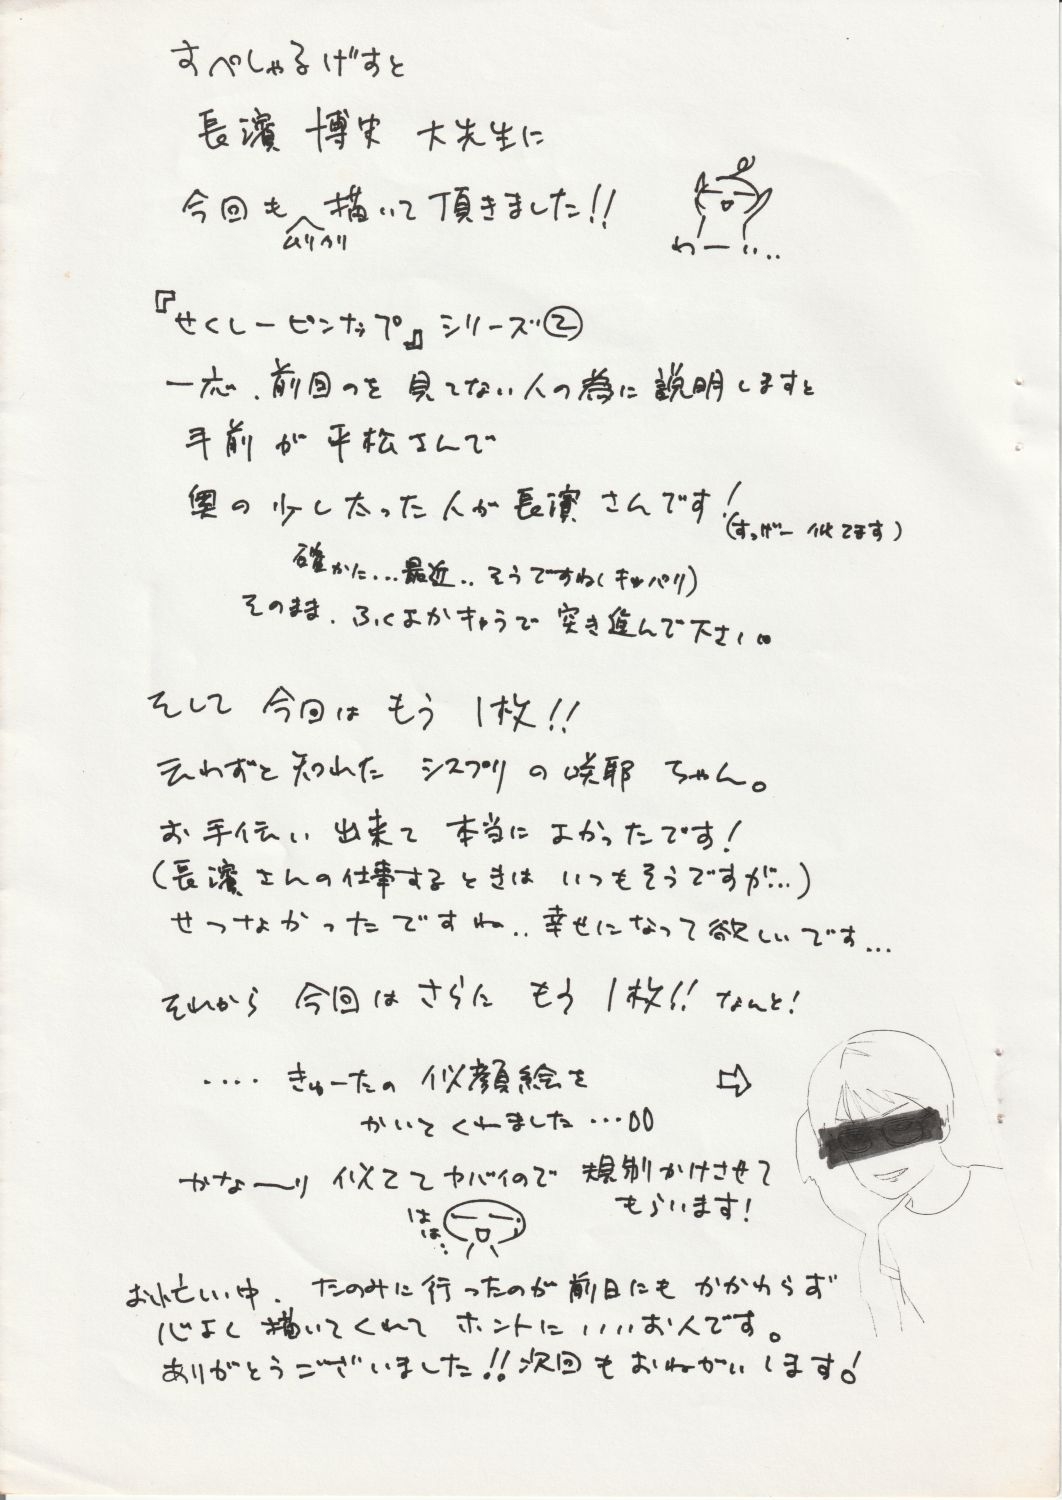 すぺしゃるげすと
長濱 博史 大先生に
今回も ムリヤリ 描いて頂きました!!
わーい..
『せくしーピンナップ』シリーズ②
一応、前回のを見てない人の為に説明しますと
手前が平松さんで
奥の少し太った人が長濱さんです!
(すっげー似てます)
確かに...最近..そうですね(キッパリ)
そのまま、ふくよかきゃらで突き進んで下さい。
そして今回はもう1枚!!
云わずと知れたシスプリの咲耶ちゃん。
お手伝い出来て本当によかったです!
(長濱さんの仕事するときはいつもそうですが...)
せつなかったですね..幸せになって欲しいです...
それから今回はさらにもう1枚!!なんと!
....きゅーたの似顔絵を ⇨
かいてくれました...
かな〜り似ててヤバイので規制かけさせて
もらいます!
はは...
お忙しい中、たのみに行ったのが前日にもかかわらず
心よく描いてくれてホントにいいお人です。
ありがとうございました!!次回もおねがいします!